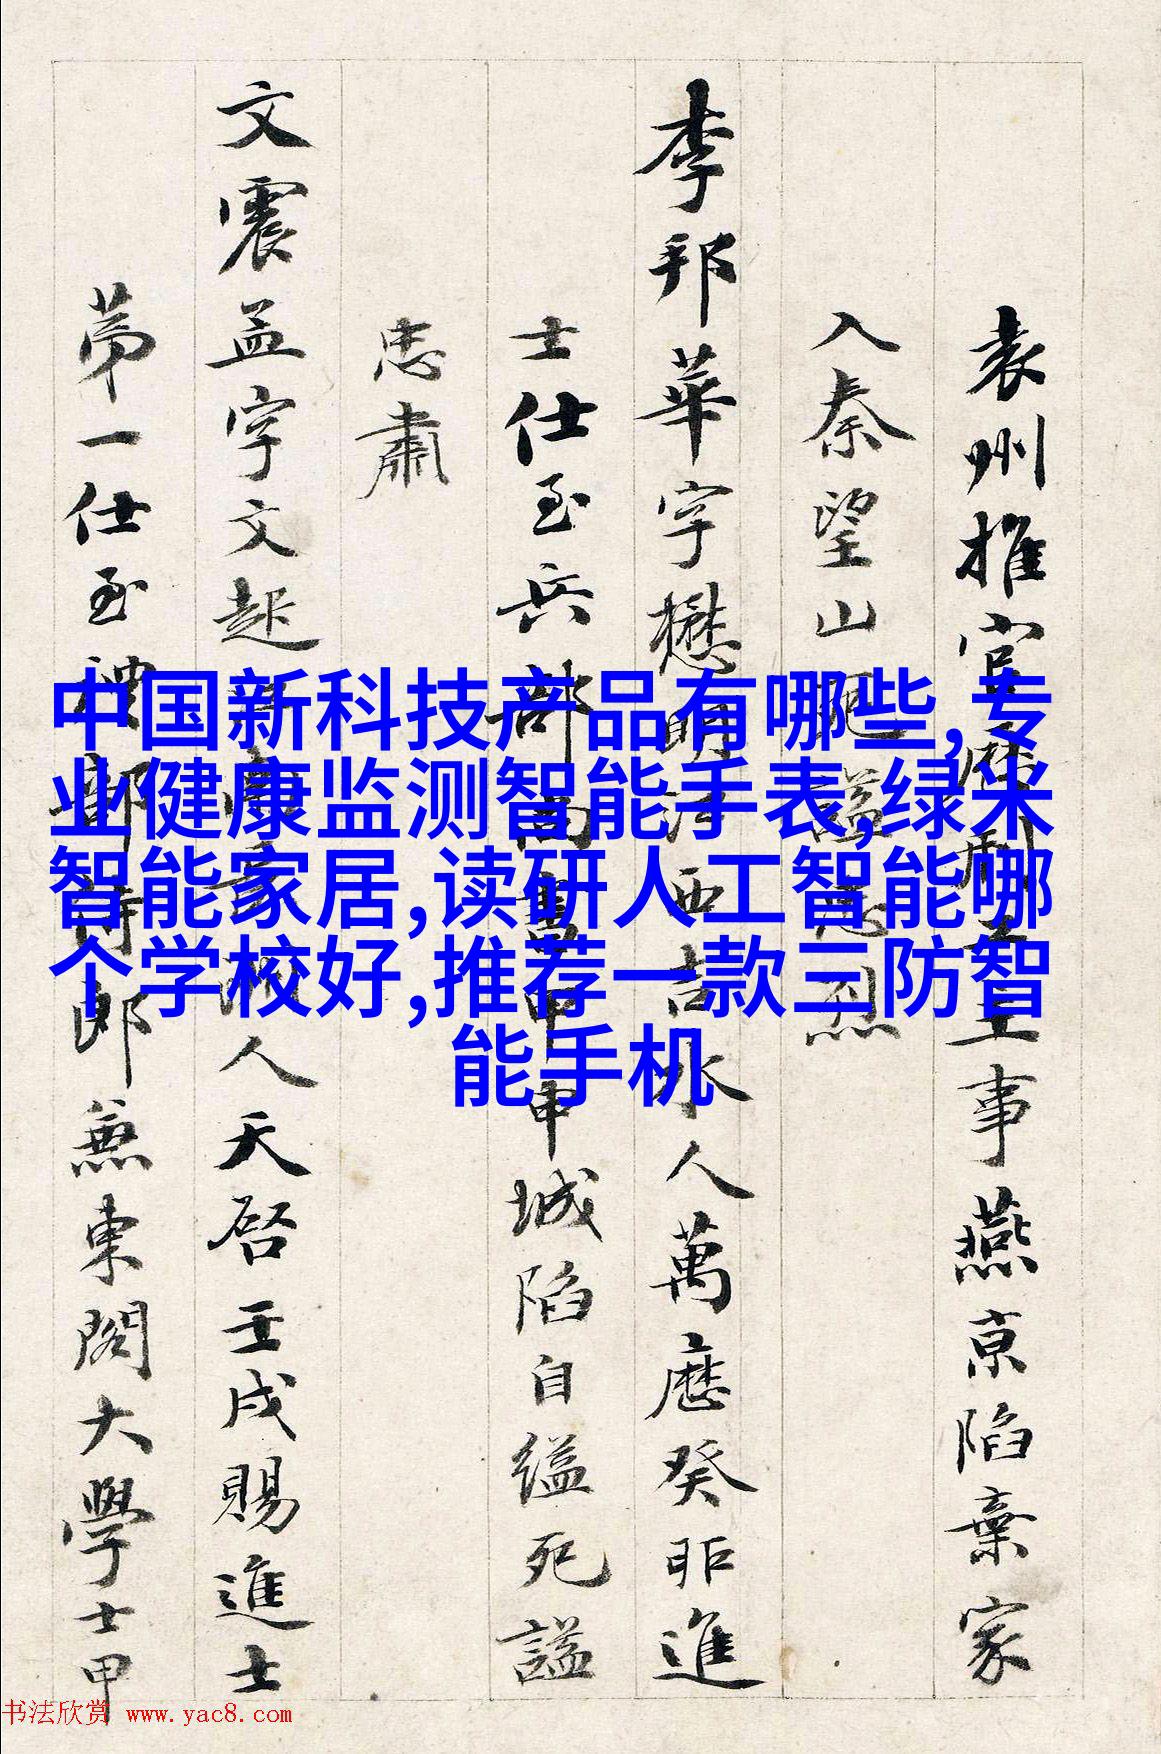 袁州推官歷刑部主事燕京陷棄家
入秦望山
烈
李邦華字懋明江西吉水人萬曆癸卯進
士仕至兵部尚書甲申城陷自縊死謚
忠肅
文震孟字文起
人天啓壬戌賜進士
第一仕至禮部侍郎兼東閣大學士甲
中国新科技产品有哪些,专
业健康监测智能手表,绿米
智能家居,读研人工智能哪
个学校好,推荐一款三防智
能手机
书法欣赏 www.yac8.com